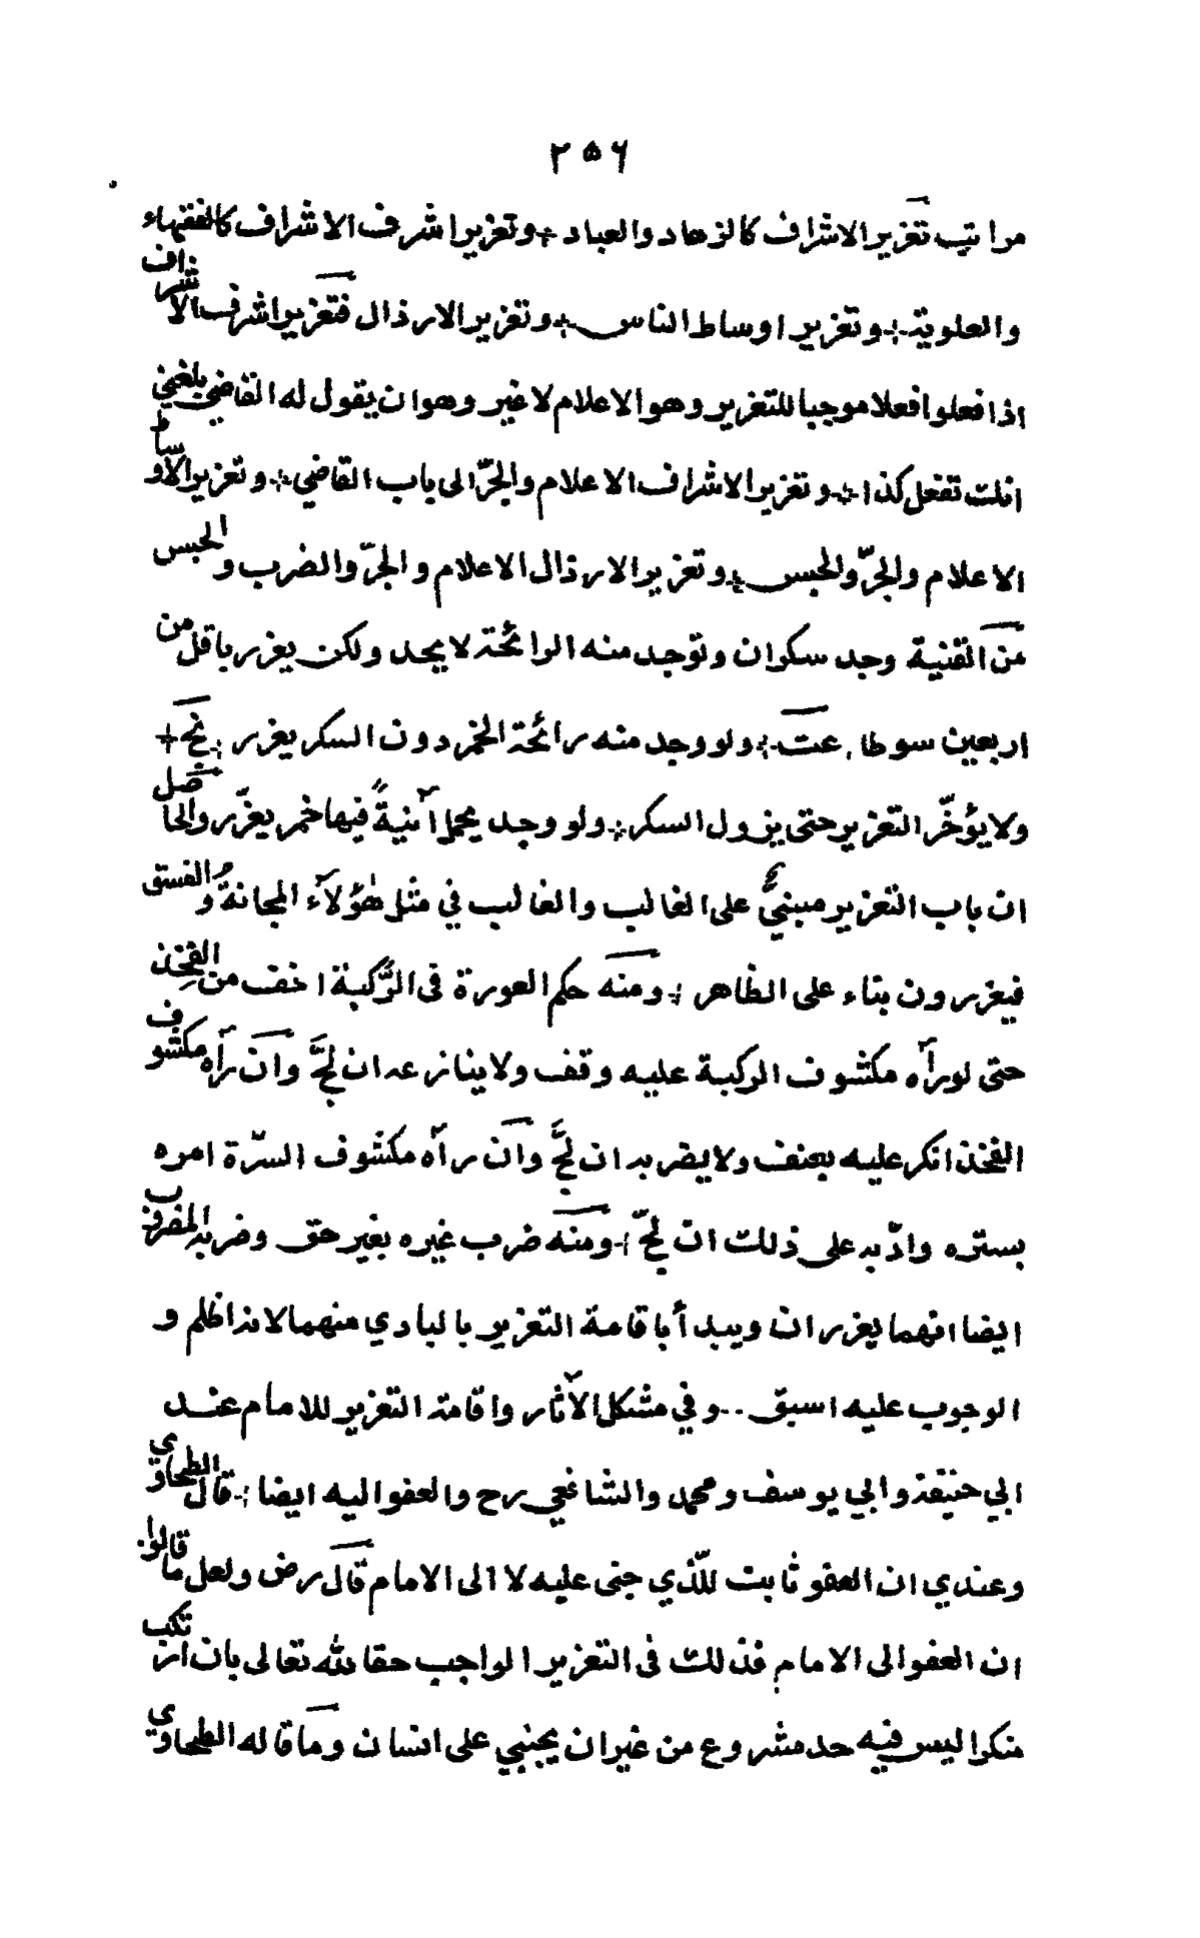 ٢٥٦
مراتب تعزير الاشراف كالزهاد والعباد ÷ وتعزير اشرف الاشراف كالفقهاء
والعلوية ÷ وتعزير اوساط الناس ÷ وتعزير الارذال فتعزير اشرف الاشراف
اذا فعلوا فعلا موجبا للتعزير وهو الاعلام لا غير وهو ان يقول له القاضي بلغني
انك تفعل كذا ÷ وتعزير الاشراف الاعلام والجرّ الى باب القاضي ÷ وتعزير الاوساط
الاعلام والجرّ والحبس ÷ وتعزير الارذال الاعلام والجرّ والضرب والحبس
من القنية وجد سكران وتوجد منه الرائحة لا يحد ولكن يعزر باقل من
اربعين سوطا ، عت ÷ ولو وجد منه رائحة الخمر دون السكر يعزر ÷ نج +
ولا يؤخّر التعزير حتى يزول السكر ÷ ولو وجد يحمل آنيةً فيها خمر يعزّر والحاصل
ان باب التعزير مبنيٌّ على الغالب والغالب في مثل هٰؤلآء المجانةُ والفسق
فيعزرون بناء على الظاهر ÷ ومنه حكم العورة فى الرُّكبة اخف من الفخِذ
حتى لو رآه مكشوف الركبة عليه وقف ولا ينازعه ان لجَّ وان رآه مكشوف
الفخذ انكر عليه بعنف ولا يضربه ان لجَّ وان رآه مكشوف السرّة امره
بستره وادّبه على ذلك ان لجّ ÷ ومنه ضرب غيره بغير حق وضربه المضروب
ايضا انهما يعزران ويبدأ باقامة التعزير بالبادي منهما لانه اظلم و
الوجوب عليه اسبق .. وفي مشكل الآثار واقامة التعزير للامام عند
ابي حنيفة وابي يوسف ومحمد والشافعي رح والعفو اليه ايضا ÷ قال الطحاوي
وعندي ان العفو ثابت للّذي جنى عليه لا الى الامام قال رض ولعل ما قالوا
ان العفو الى الامام فذلك فى التعزير الواجب حقا لله تعالى بان ارتكب
منكرا ليس فيه حد مشروع من غير ان يجني على انسان وما قاله الطحاوي